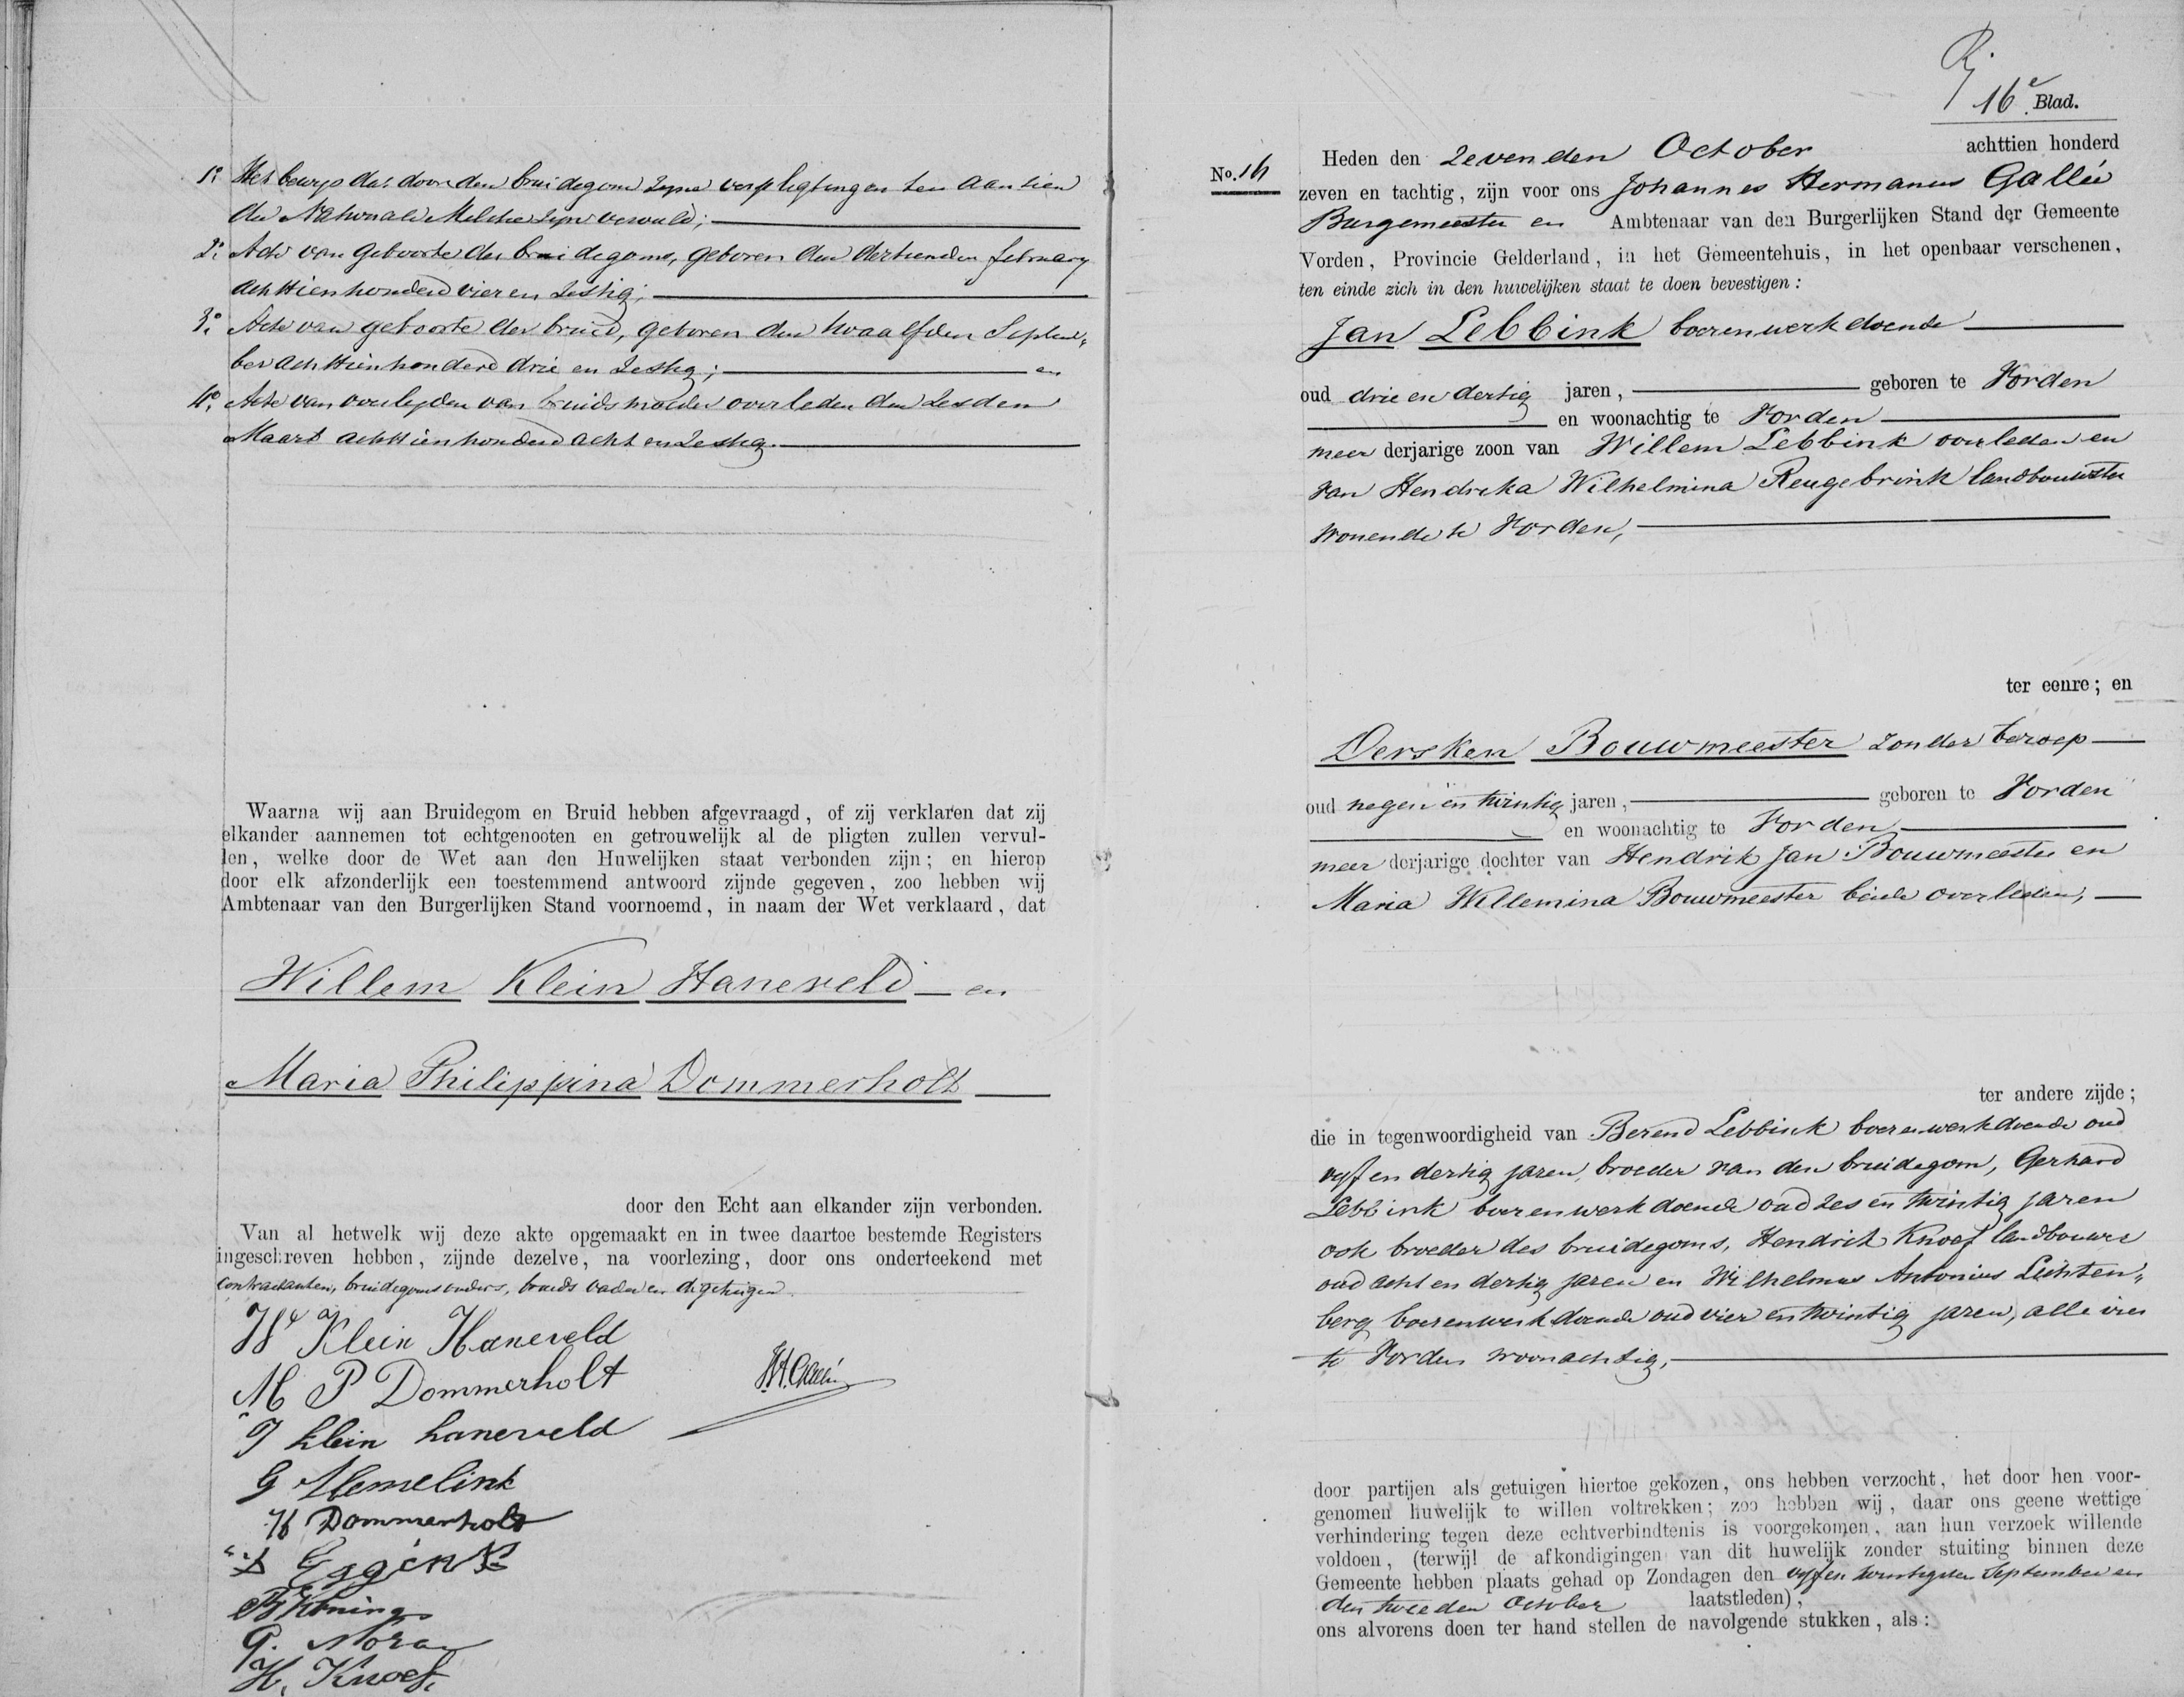 1º. Het bewijs dat door den bruidegom zijne verpligtingen ten aanzien
der Nationale Militie zijn vervuld;
2º. Acte van geboorte des bruidegoms, geboren den dertienden february
achttienhonderd vier en zestig;
3º. Acte van geboorte der bruid, geboren den twaalfden Septem„
ber achttienhonderd drie en zestig; en
4º. Acte van overlyden van bruids moeder overleden den zesden
Maart achttienhonderd acht en zestig.
Waarna wij aan Bruidegom en Bruid hebben afgevraagd, of zij verklaren dat zij
elkander aannemen tot echtgenooten en getrouwelijk al de pligten zullen vervul-
len, welke door de Wet aan den Huwelijken staat verbonden zijn; en hierop
door elk afzonderlijk een toestemmend antwoord zijnde gegeven, zoo hebben wij
Ambtenaar van den Burgerlijken Stand voornoemd, in naam der Wet verklaard, dat
Willem Klein Haneveld en
Maria Philippina Dommerholt
door den Echt aan elkander zijn verbonden.
Van al hetwelk wij deze akte opgemaakt en in twee daartoe bestemde Registers
ingeschreven hebben, zijnde dezelve, na voorlezing, door ons onderteekend met
Contractanten, bruidegoms ouders, bruids vader en de getuigen.
Wm Klein Haneveld
M P Dommerholt
J.H. Gallée
J klein haneveld
G Memelink
H Dommerholt
Essink
Koning
G. Noran
H. Knoef.
Rj
16e Blad.
No. 16
Heden den zevenden October achttien honderd
zeven en tachtig, zijn voor ons Johannes Hermanus Gallée
Burgemeester en Ambtenaar van den Burgerlijken Stand der Gemeente
Vorden, Provincie Gelderland, in het Gemeentehuis, in het openbaar verschenen,
ten einde zich in den huwelijken staat te doen bevestigen:
Jan Lebbink boerenwerkdoende
oud drie en dertig jaren, geboren te Vorden
en woonachtig te Vorden
meer derjarige zoon van Willem Lebbink overleden en
van Hendrika Wilhelmina Reugebrink landbouwster
wonende te Vorden,
ter eenre; en
Dersken Bouwmeester zonder beroep
oud negen en twintig jaren, geboren te Vorden
en woonachtig te Vorden
meer derjarige dochter van Hendrik Jan Bouwmeester en
Maria Willemina Bouwmeester beide overleden,
ter andere zijde;
die in tegenwoordigheid van Berend Lebbink boerenwerkdoende oud
vijf en dertig jaren, broeder van den bruidegom, Gerhard
Lebbink boerenwerkdoende oud zes en twintig jaren
ook broeder des bruidegoms, Hendrik Knoef landbouwer
oud acht en dertig jaren en Wilhelmus Antonius Lichten„
berg boerenwerkdoende oud vier en twintig jaren, alle vier
te Vorden woonachtig,
door partijen als getuigen hiertoe gekozen, ons hebben verzocht, het door hen voor-
genomen huwelijk te willen voltrekken; zoo hebben wij, daar ons geene wettige
verhindering tegen deze echtverbindtenis is voorgekomen, aan hun verzoek willende
voldoen, (terwijl de afkondigingen van dit huwelijk zonder stuiting binnen deze
Gemeente hebben plaats gehad op Zondagen den vijf en twintigsten September en
den tweeden October laatstleden),
ons alvorens doen ter hand stellen de navolgende stukken, als: